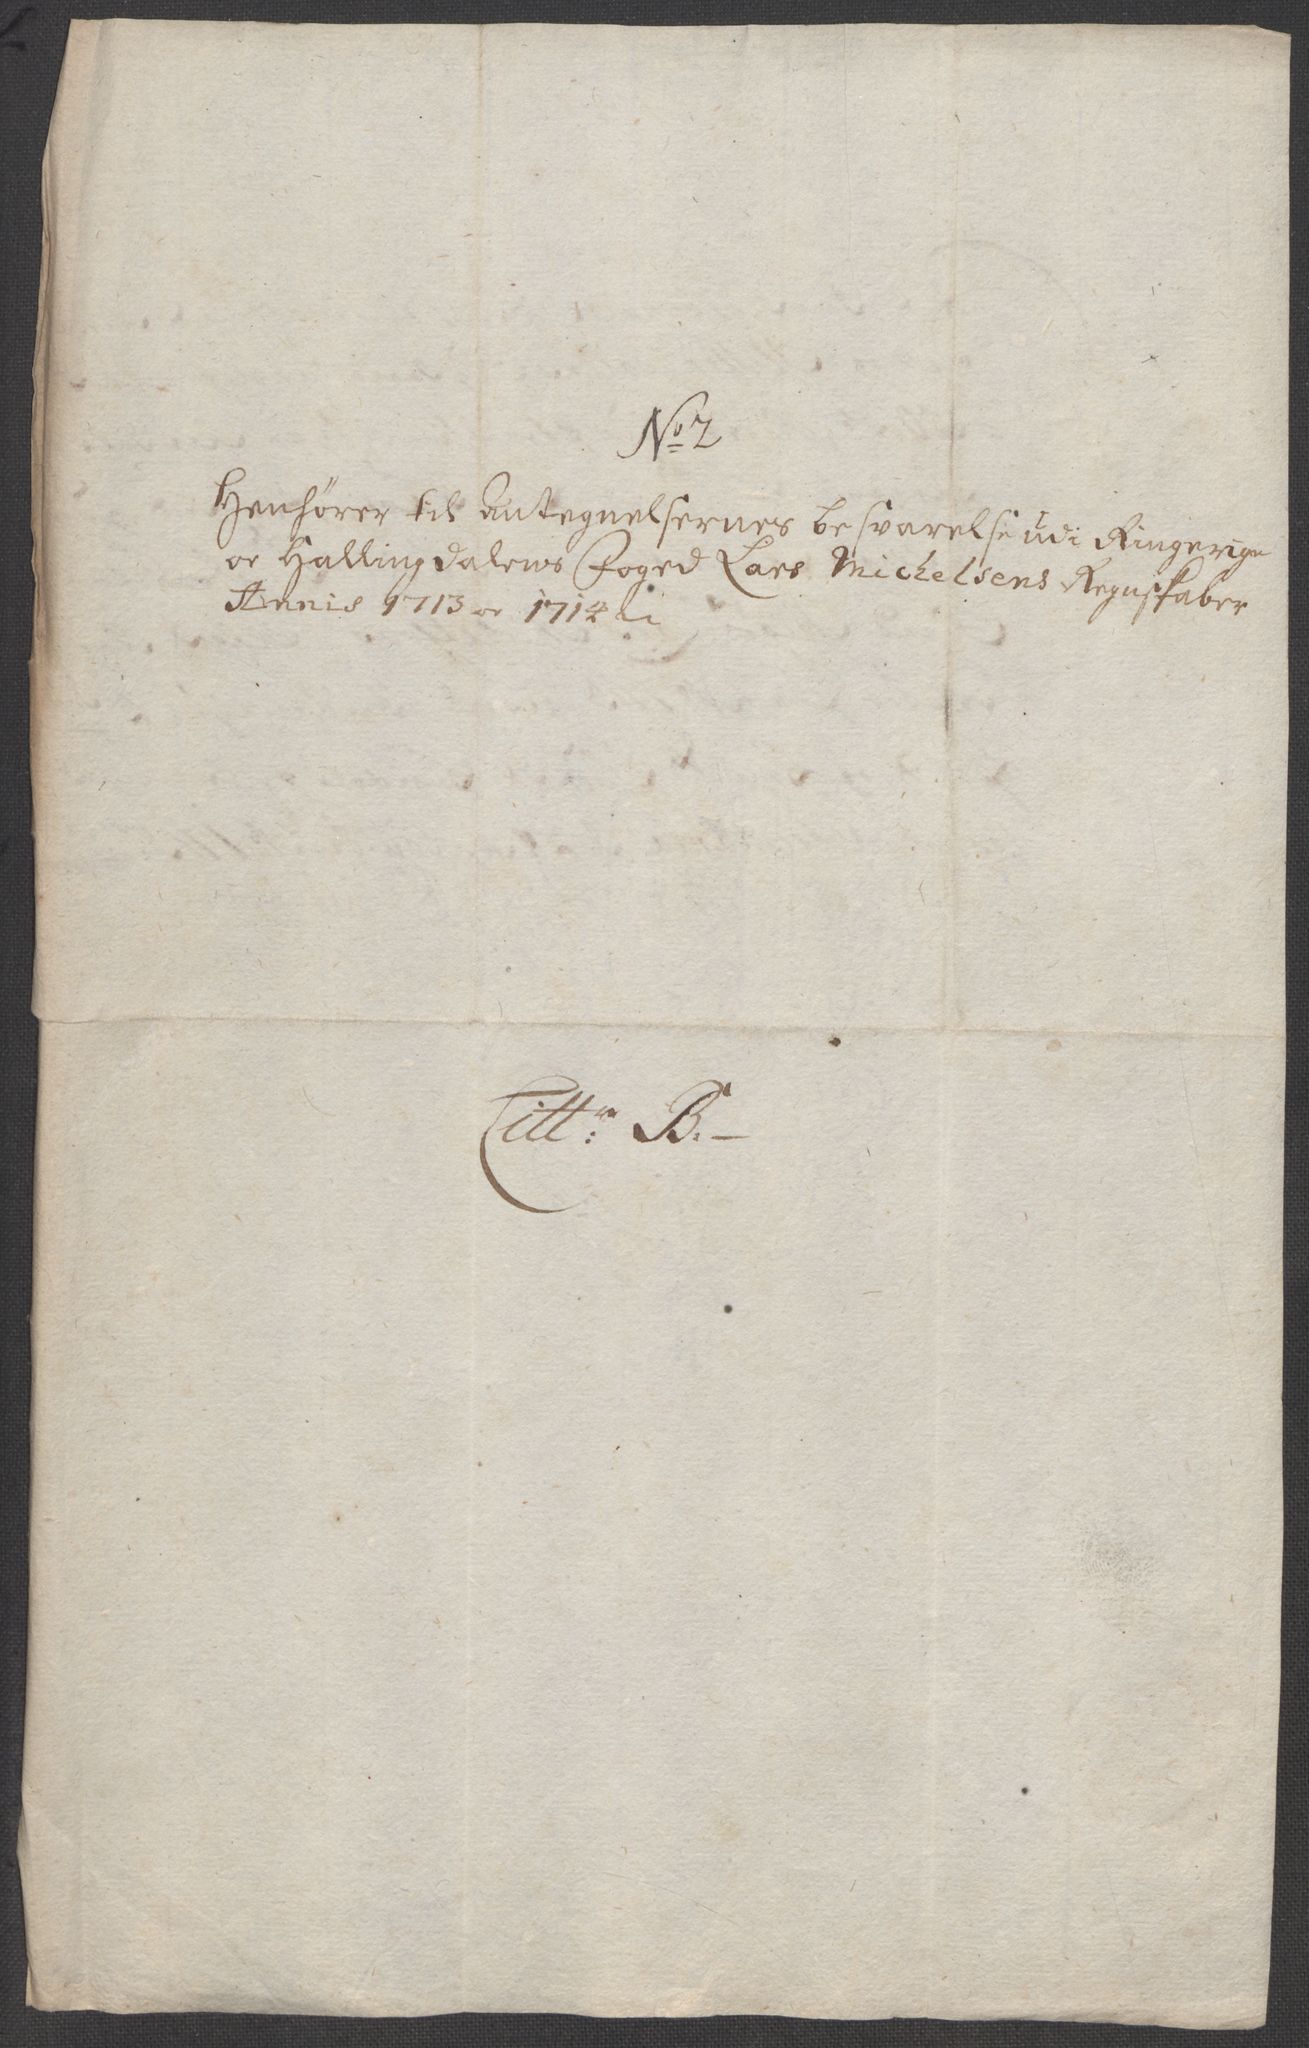 No 2
Henhører til Antegnelsernes besvarelse udi Ringerige
oc Hallingdalens Foged Lars Michelsens Regnskaber
Annis 1713 oc 1714
Littr: B. —